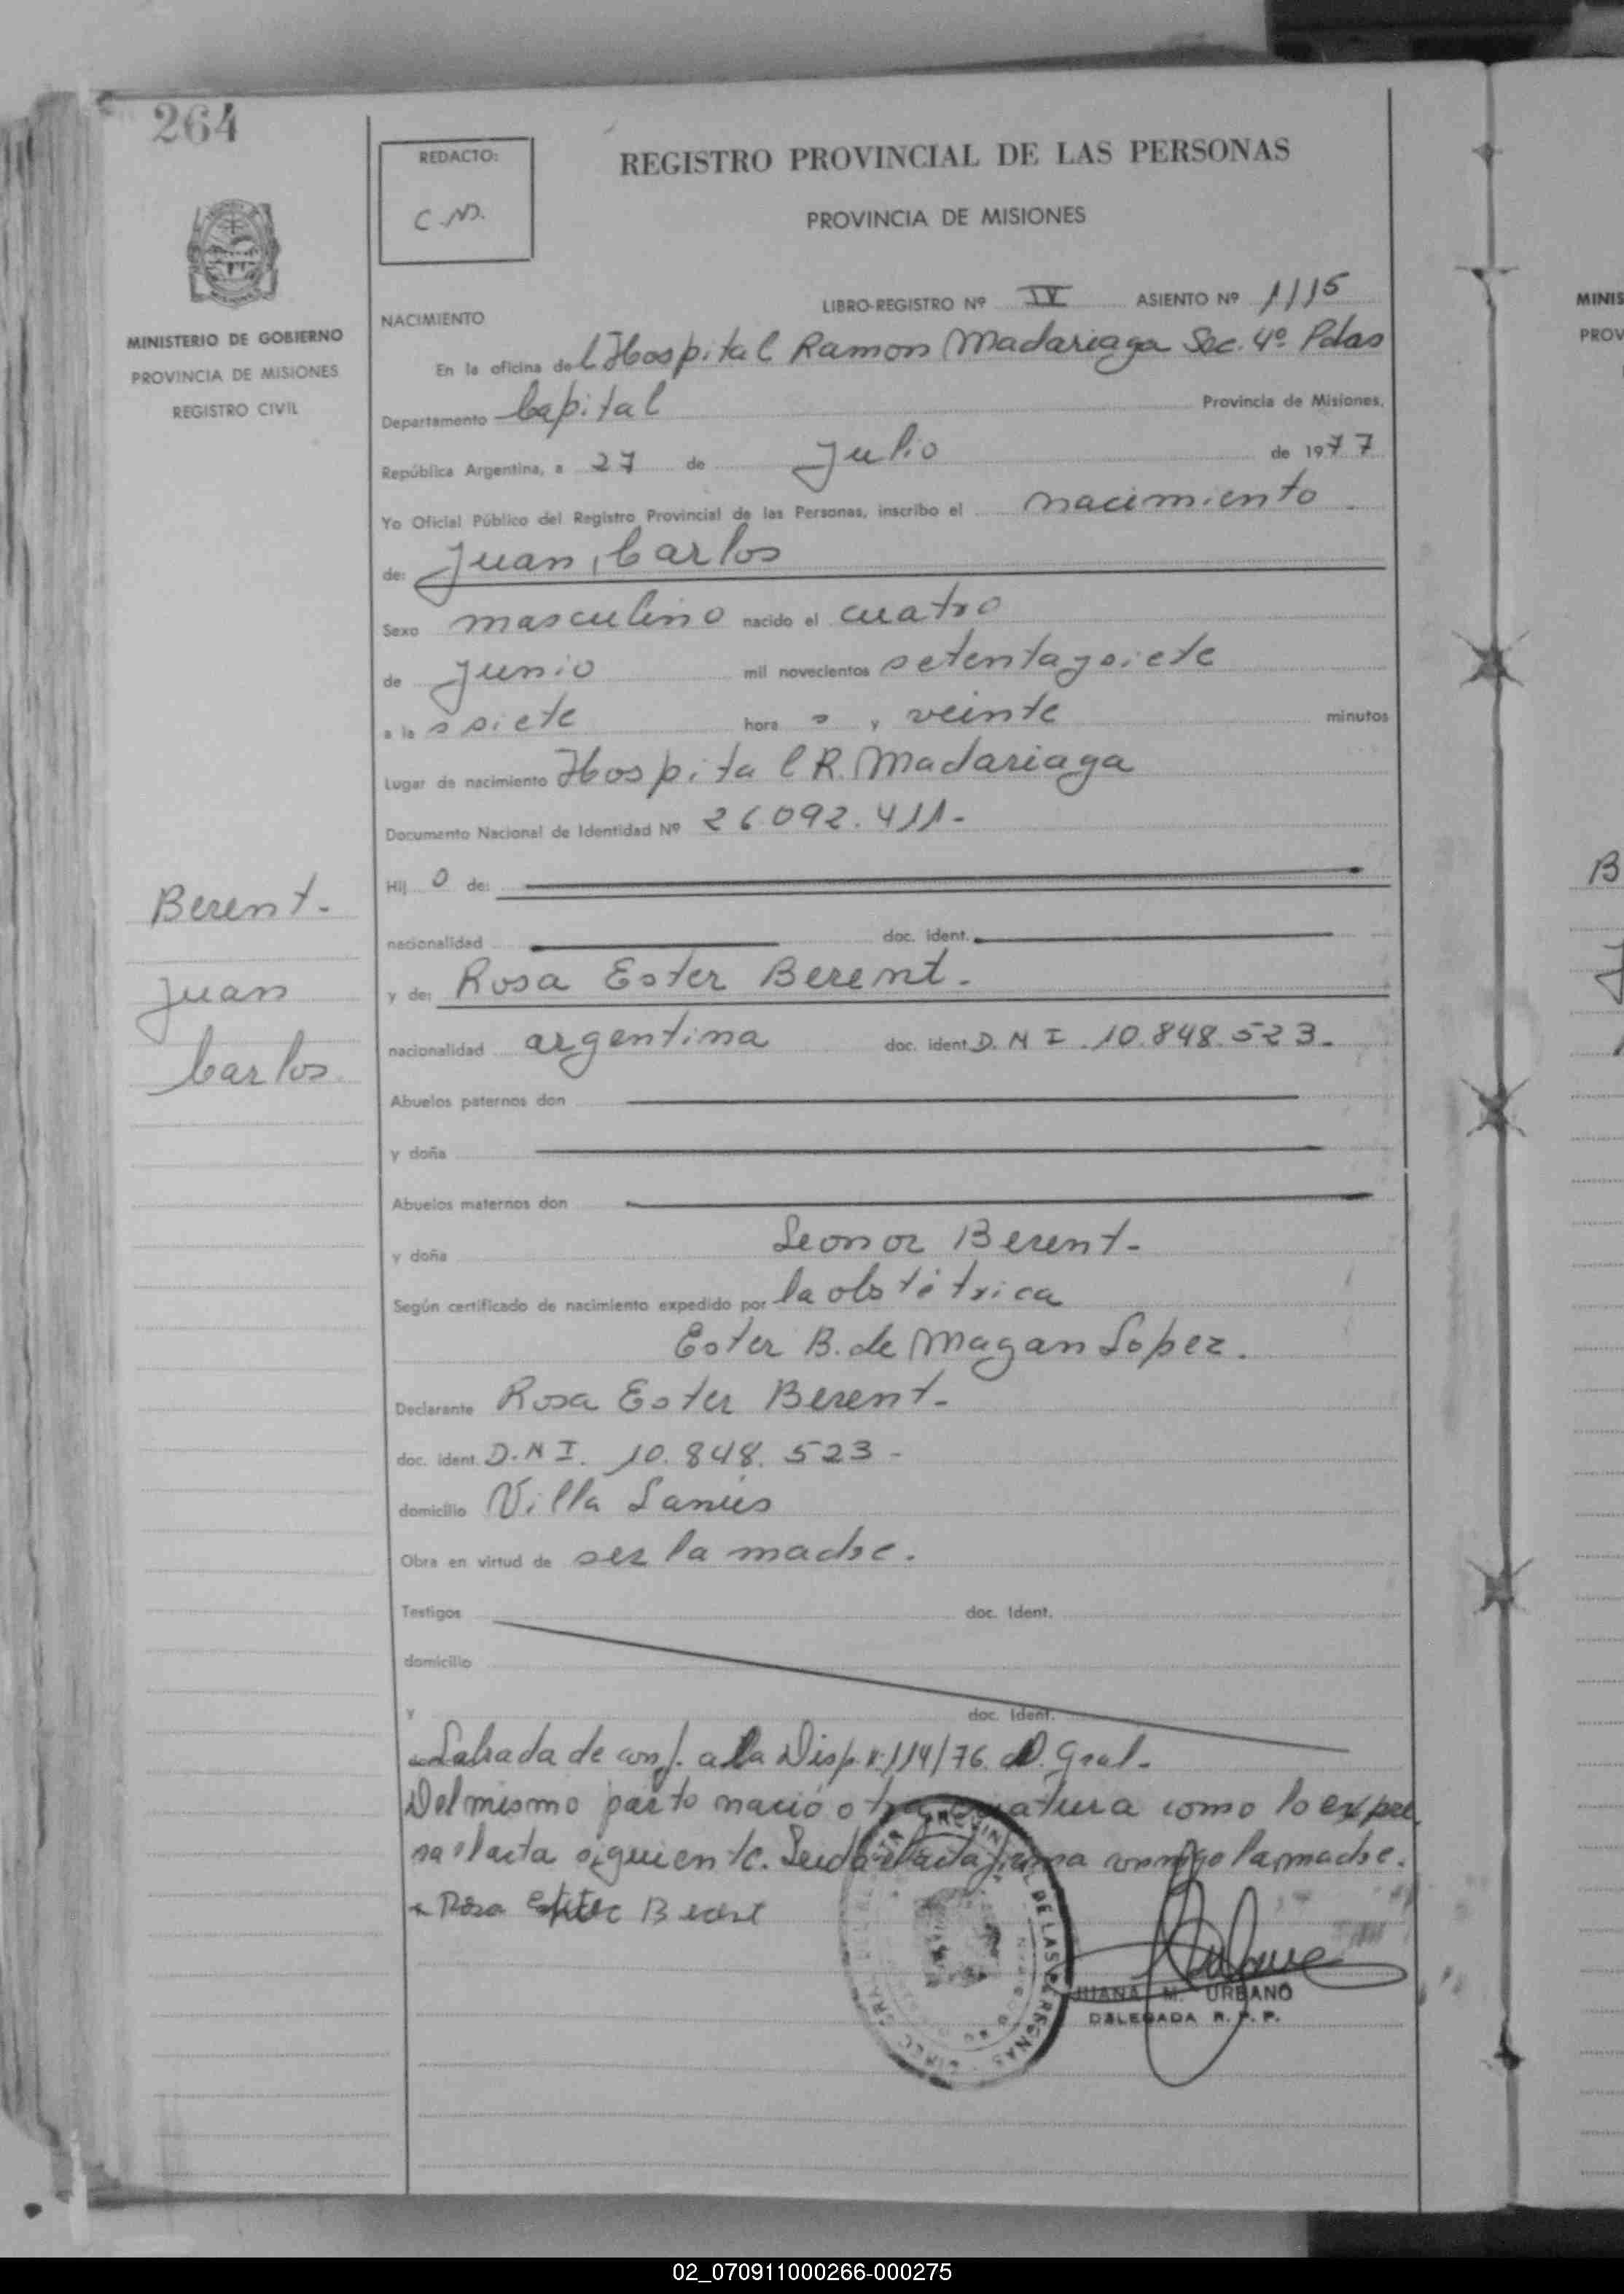 264
REDACTO:
C.N.
REGISTRO PROVINCIAL DE LAS PERSONAS
PROVINCIA DE MISIONES
MINISTERIO DE GOBIERNO
PROVINCIA DE MISIONES
REGISTRO CIVIL
NACIMIENTO
LIBRO-REGISTRO Nº IV ASIENTO Nº 1115
En la oficina del Hospital Ramon Madariaga Sec. 4º Pdas
Departamento Capital Provincia de Misiones,
República Argentina, a 27 de Julio de 1977
Yo Oficial Público del Registro Provincial de las Personas, inscribo el nacimiento
de: Juan, Carlos
Sexo masculino nacido el cuatro
de Junio mil novecientos setentaysiete
a las siete hora s y veinte minutos
Lugar de nacimiento Hospital R. Madariaga
Documento Nacional de Identidad Nº 26.092.411-
Hij o de:
nacionalidad doc. ident.
y de: Rosa Ester Berent.
nacionalidad argentina doc. ident. D.N I. 10.848.523.
Abuelos paternos don
y doña
Abuelos maternos don
y doña Leonor Berent-
Según certificado de nacimiento expedido por la obstétrica
Ester B. de Magan Lopez.
Declarante Rosa Ester Berent-
doc. ident. D.N I. 10.848.523-
domicilio Villa Lanús
Obra en virtud de ser la madre.
Testigos doc. Ident.
domicilio
y doc. Ident.
Labrada de conf. a la Disp. n:114/76. D. Gral-
Del mismo parto nació otra criatura como lo expre
sa el acta siguiente. Leida el acta firma conmigo la madre.
Rosa Ester Berent
JUANA M. URBANO
DELEGADA R. P. P.
Berent-
Juan
Carlos
MINIS
PROV
B
02_070911000266-000275